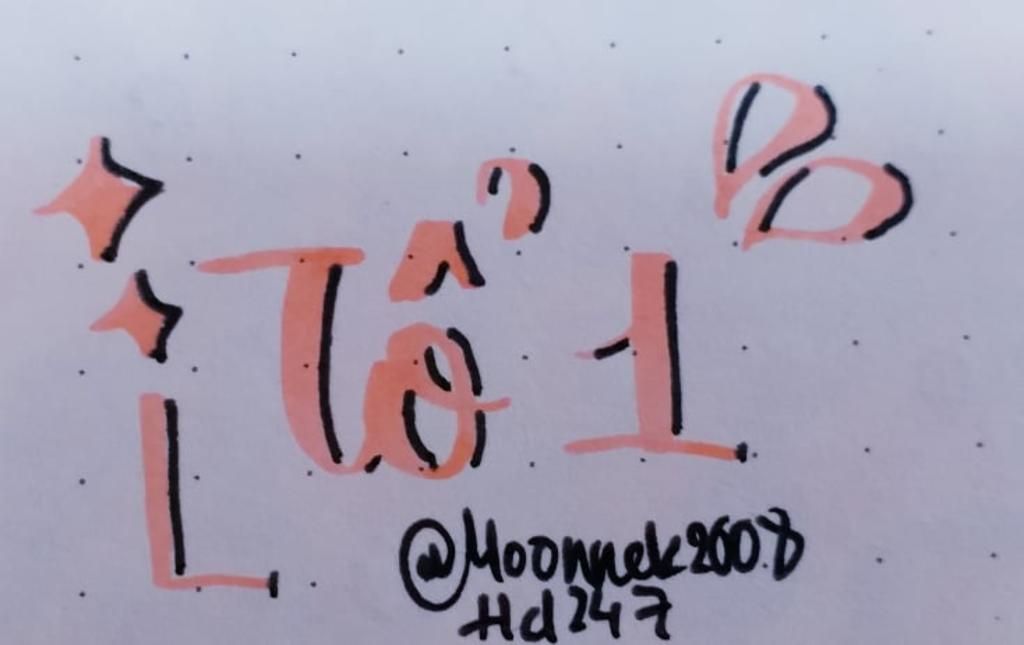 Tổ 1
@Moonnek2008
Hd247